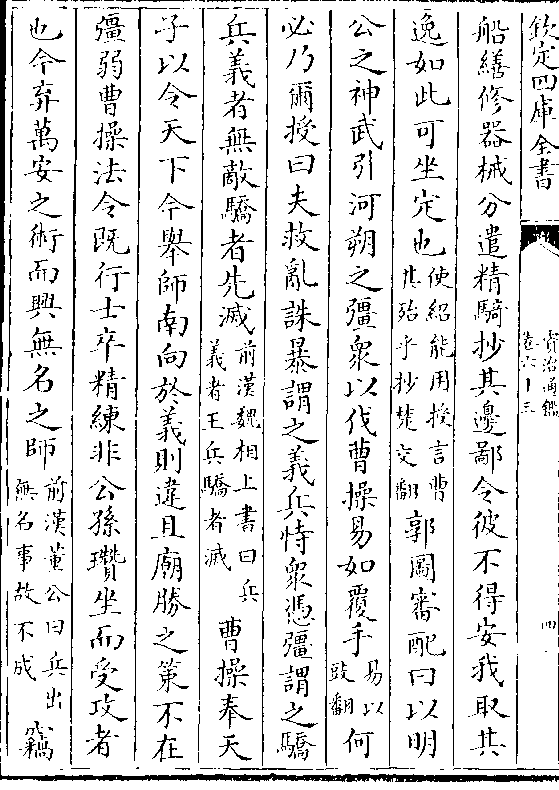 欽定四庫全書
資治通鑑
卷六十三
四
船繕修器械分遣精騎抄其邊鄙令彼不得安我取其
逸如此可坐定也使紹能用授言曹其殆乎抄楚交翻郭圖審配曰以明
公之神武引河朔之彊衆以伐曹操易如覆手易以豉翻何
必乃爾授曰夫救亂誅暴謂之義兵恃衆憑彊謂之驕
兵義者無敵驕者先滅前漢魏相上書曰兵義者王兵驕者滅曹操奉天
子以令天下今舉師南向於義則違且廟勝之策不在
彊弱曹操法令既行士卒精練非公孫瓚坐而受攻者
也今弃萬安之術而興無名之師前漢董公曰兵出無名事故不成竊